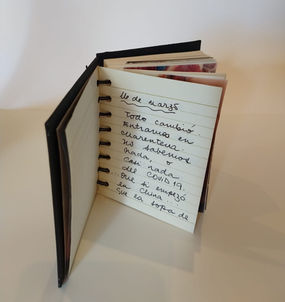 16 de marzo
Todo cambió.
Entramos en
cuarentena.
No sabemos
nada, o
casi nada
del COVID19.
Que si empezó
en China.
Que la sopa de